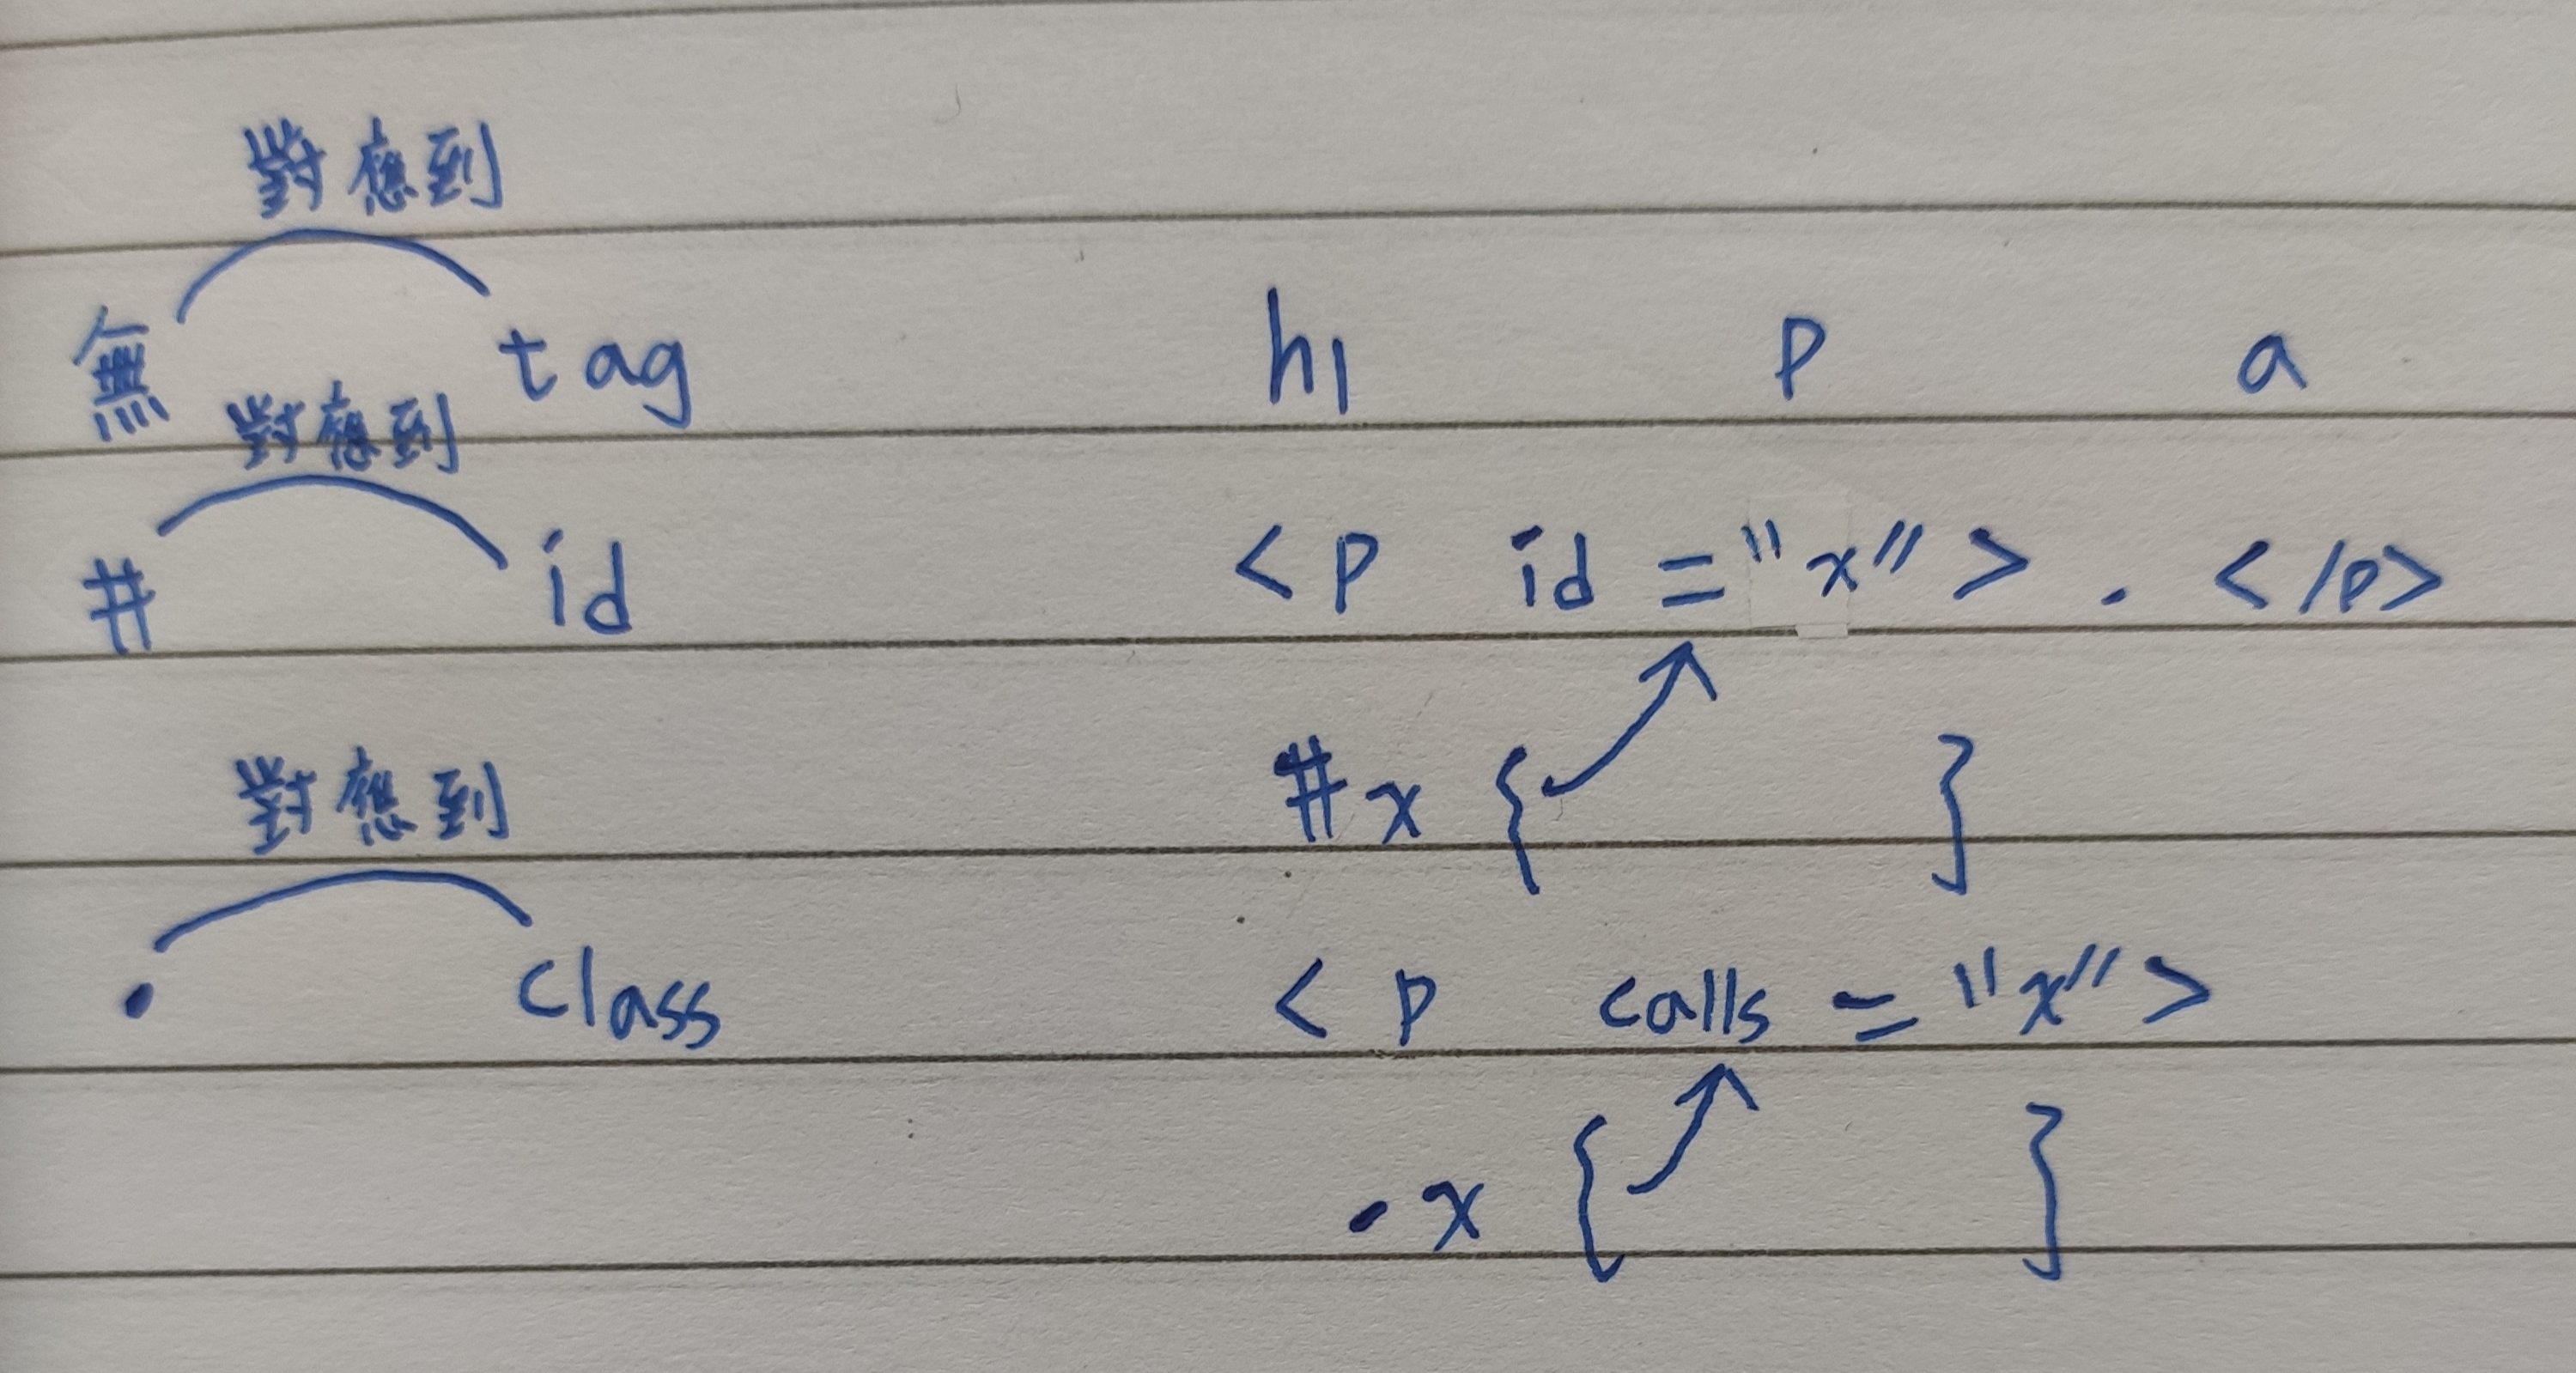 對應到
無 tag h1 p a
對應到
# id <p id="x"> . </p>
#x { }
對應到
. class <p calls="x">
.x { }